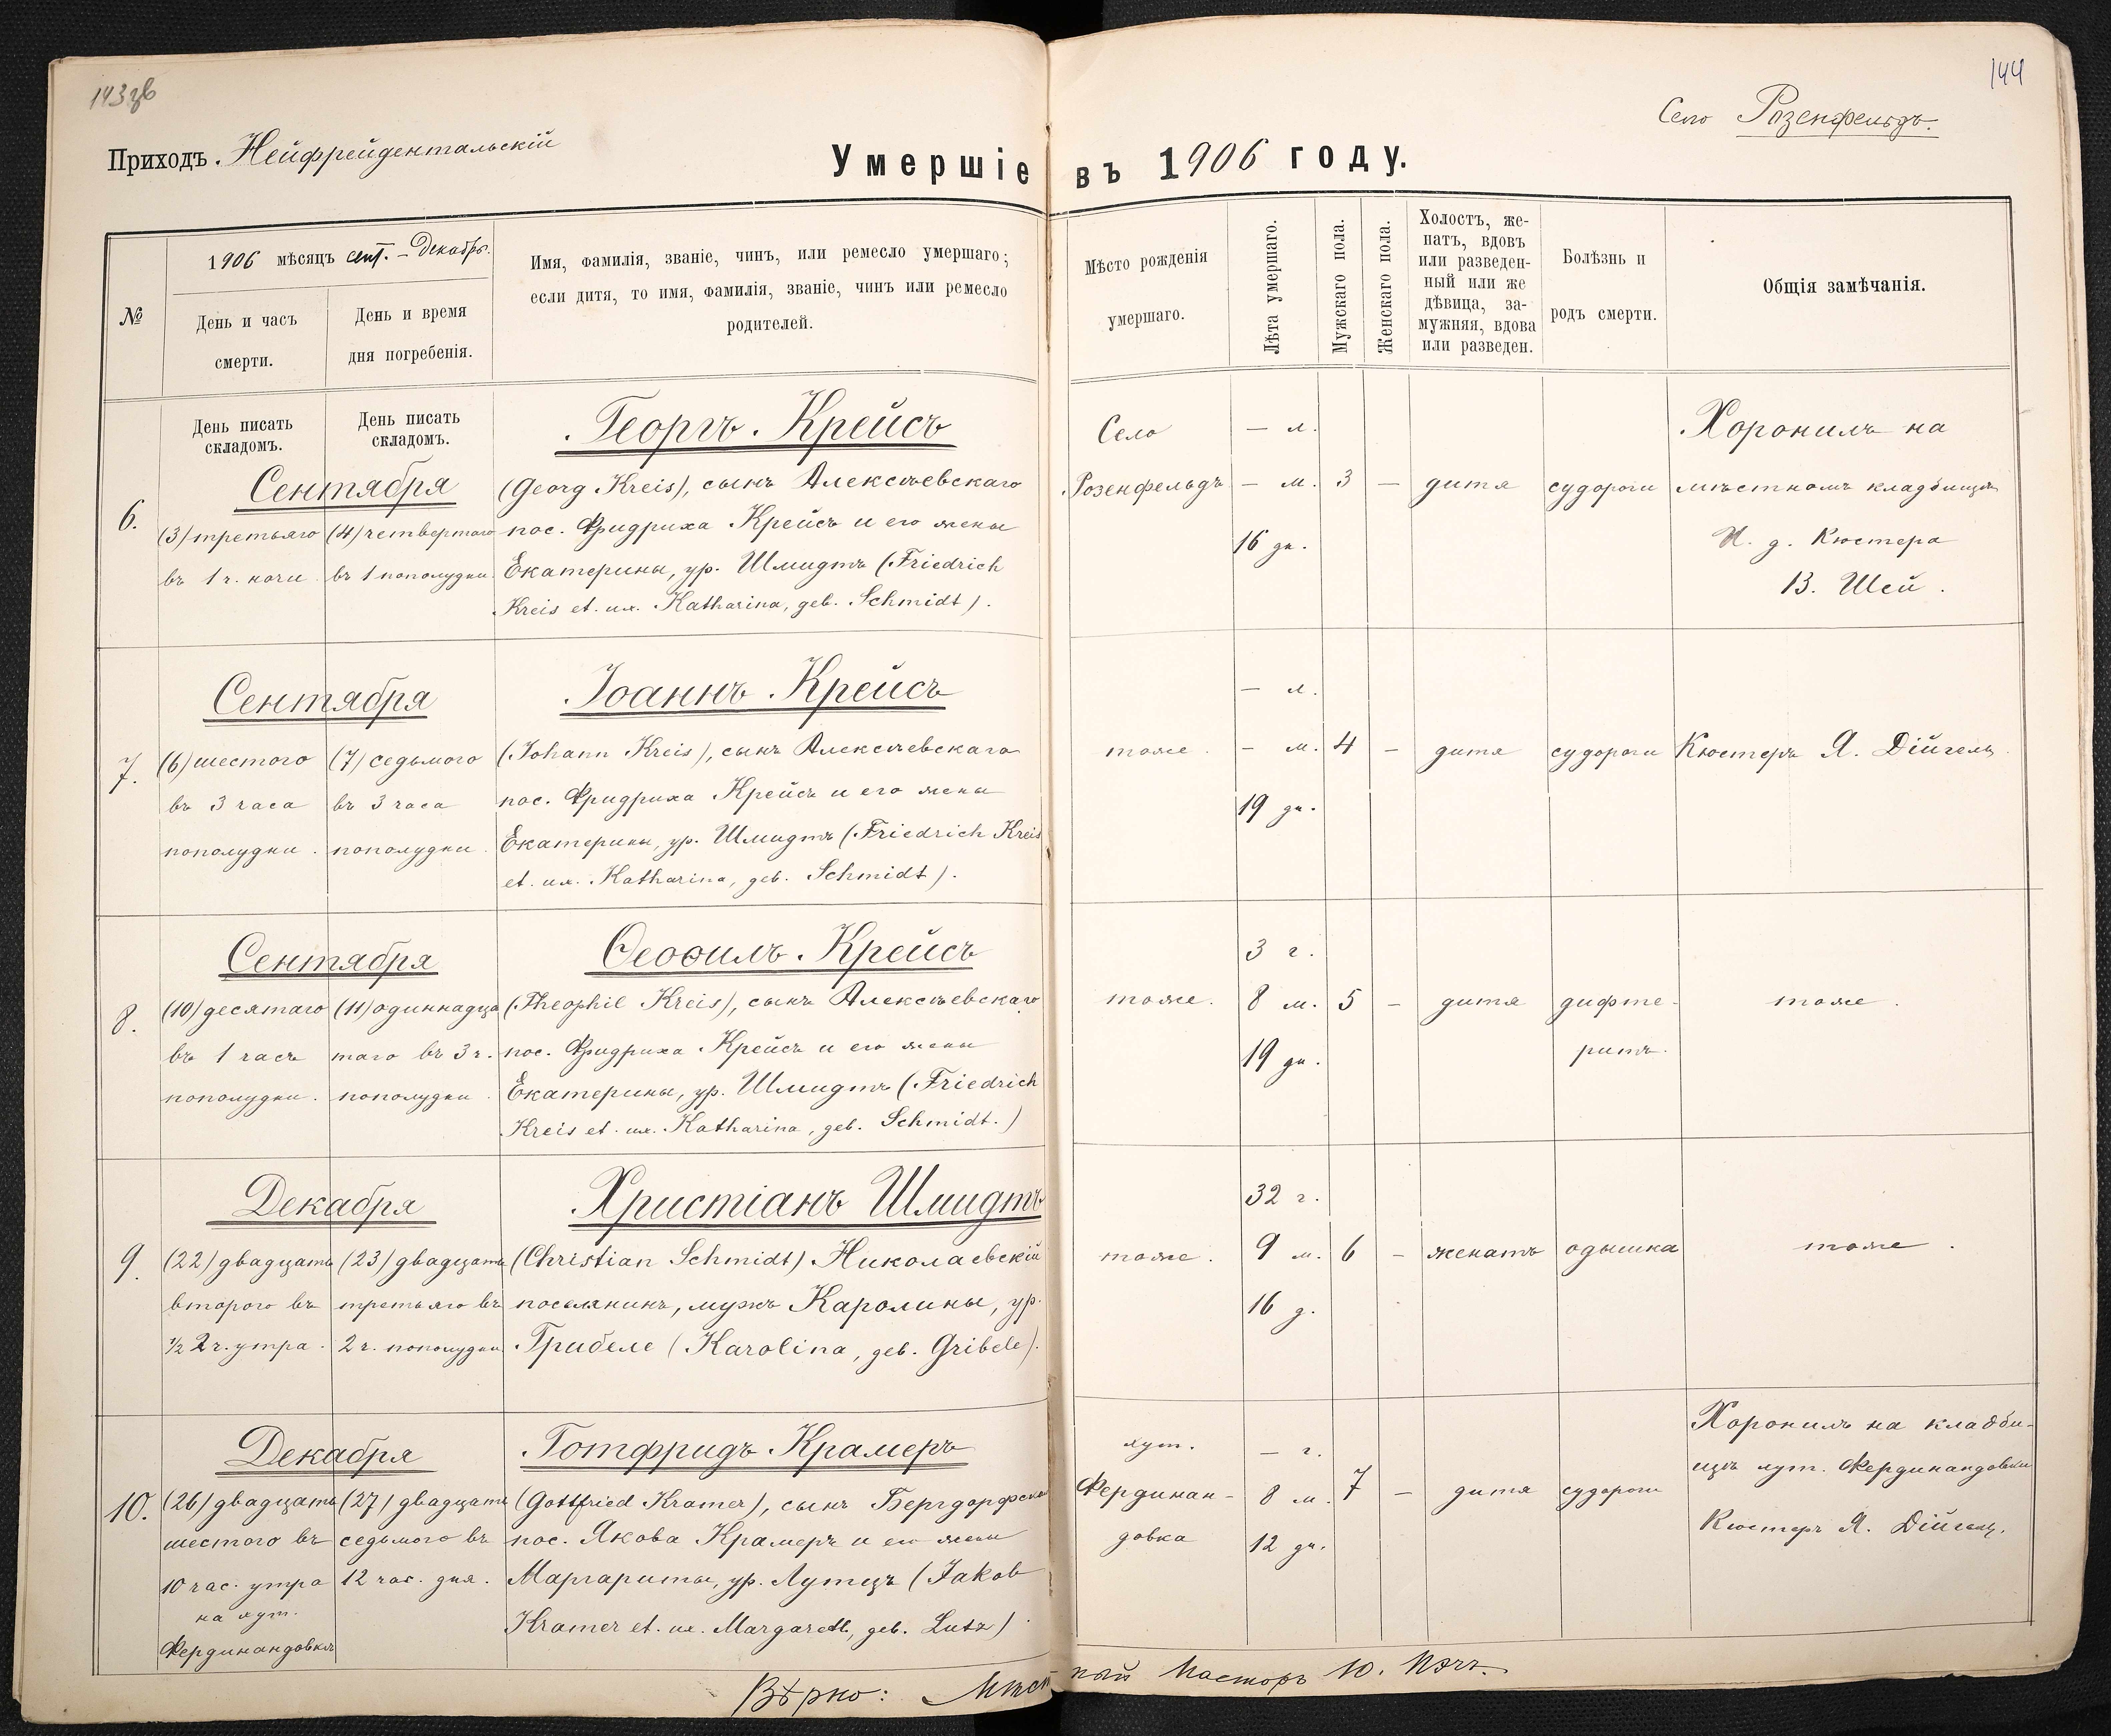 143 об
144
Село Розенфельдъ.
Приходъ. Нейфрейдентальскій
Умершіе въ 1906 году.
№
1906 мѣсяцъ сент. – Декабрь.
День и часъ
смерти.
День и время
дня погребенія.
Имя, фамилія, званіе, чинъ, или ремесло умершаго;
если дитя, то имя, фамилія, званіе, чинъ или ремесло
родителей.
Мѣсто рожденія
умершаго.
Лѣта умершаго.
Мужскаго пола.
Женскаго пола.
Холостъ, же-
натъ, вдовъ
или разведен-
ный или же
дѣвица, за-
мужняя, вдова
или разведен.
Болѣзнь и
родъ смерти.
Общія замѣчанія.
День писать
складомъ.
День писать
складомъ.
6.
Сентября
(3) третьяго
въ 1 ч. ночи
(4) четвертаго
въ 1 пополудни
Георгъ Крейсъ
(Georg Kreis), сынъ Алексѣевскаго
пос. Фридриха Крейсъ и его жены
Екатерины, ур. Шмидтъ (Friedrich
Kreis et. ux. Katharina, geb. Schmidt).
Село
Розенфельдъ
— л.
— м.
16 дн.
3
—
дитя
судороги
Хоронилъ на
мѣстномъ кладбищѣ
И. д. Кюстера
В. Шей.
7.
Сентября
(6) шестого
въ 3 часа
пополудни.
(7) седьмого
въ 3 часа
пополудни.
Іоаннъ Крейсъ
(Johann Kreis), сынъ Алексѣевскаго
пос. Фридриха Крейсъ и его жены
Екатерины, ур. Шмидтъ (Friedrich Kreis
et. ux. Katharina, geb. Schmidt).
тоже.
— л.
— м.
19 дн.
4
—
дитя
судороги
Кюстеръ Я. Дійгель.
8.
Сентября
(10) десятаго
въ 1 часъ
пополудни.
(11) одиннадца
таго въ 3 ч.
пополудни.
Ѳеофилъ Крейсъ
(Theophil Kreis), сынъ Алексѣевскаго
пос. Фридриха Крейсъ и его жены
Екатерины, ур. Шмидтъ (Friedrich
Kreis et. ux. Katharina, geb. Schmidt.)
тоже.
3 г.
8 м.
19 дн.
5
—
дитя
дифте-
ритъ.
тоже.
9.
Декабря
(22) двадцать
второго въ
½ 2 ч. утра.
(23) двадцать
третьяго въ
2 ч. пополудни
Христіанъ Шмидтъ
(Christian Schmidt) Николаевскій
поселянинъ, мужъ Каролины, ур.
Грибеле (Karolina, geb. Gribele).
тоже.
32 г.
9 м.
16 д.
6
—
женатъ
одышка
тоже.
10.
Декабря
(26) двадцать
шестого въ
10 час. утра
на хут.
Фердинандовкѣ
(27) двадцать
седьмого въ
12 час. дня.
Готфридъ Крамеръ
(Gottfried Kramer), сынъ Бергдорфска
пос. Якова Крамеръ и его жены
Маргариты, ур. Лутцъ (Jakob
Kramer et. ux. Margareth, geb. Lutz)
хут.
Фердинан-
довка
— г.
8 м.
12 дн.
7
—
дитя
судороги
Хоронилъ на кладби-
щѣ хут. Фердинандовки
Кюстеръ Я. Дійгель.
Вѣрно: Мѣстный Пасторъ Ю.